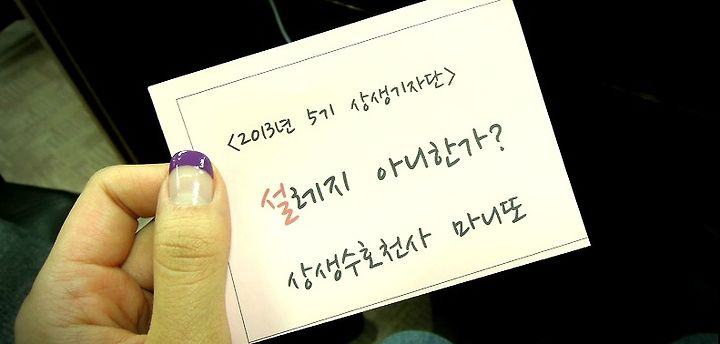 <2013년 5기 상생기자단>
설레지 아니한가?
상생수호천사 마니또